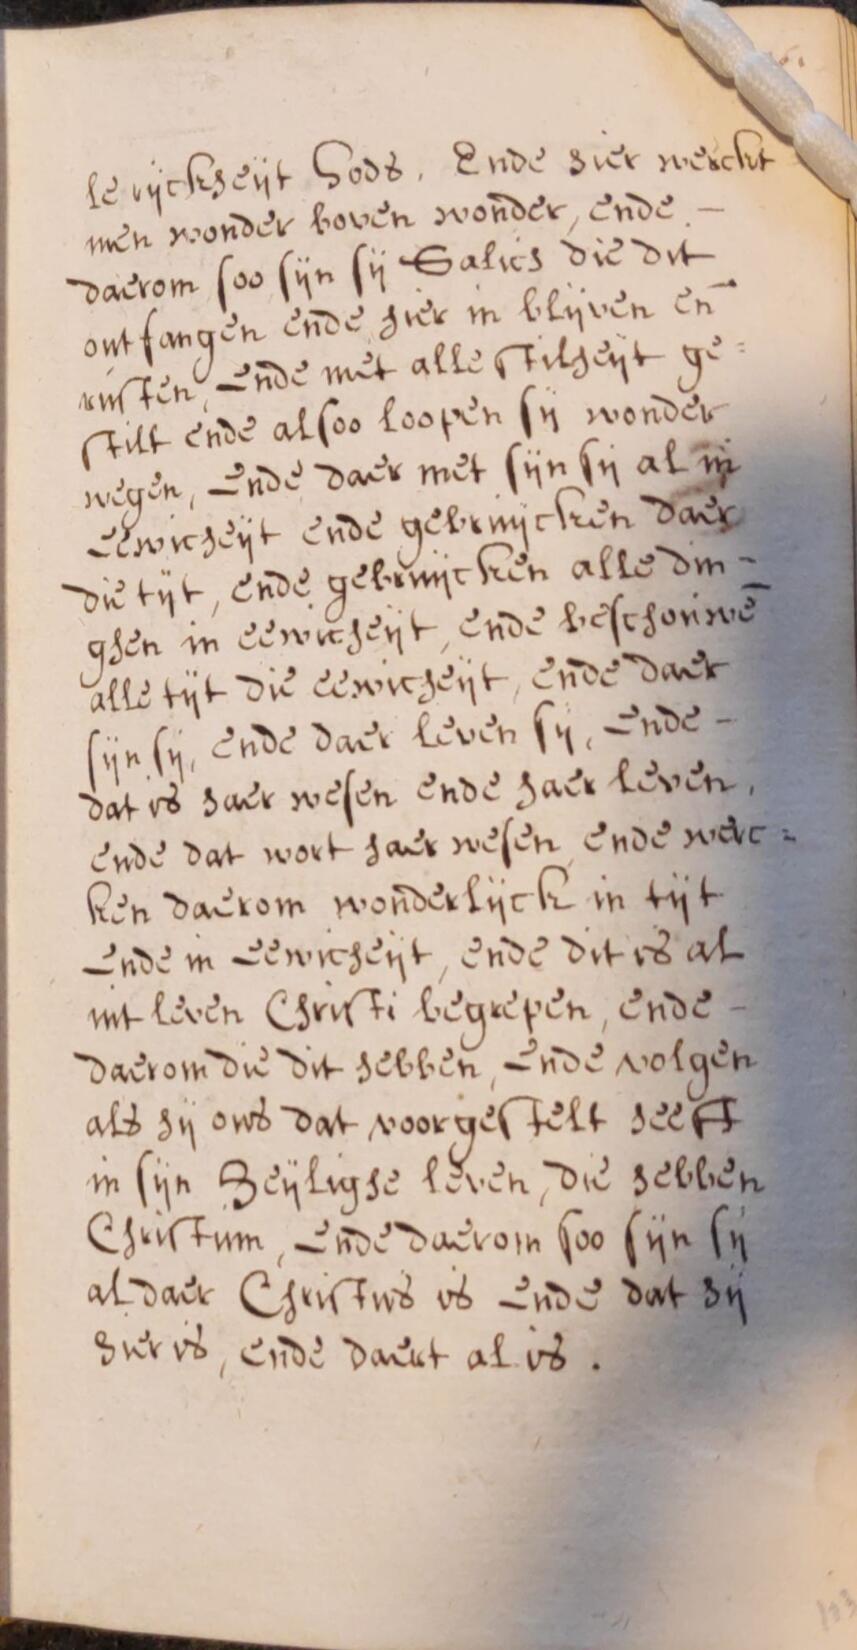 le rijckheijt Gods. Ende hier werckt
men wonder boven wonder, ende –
daerom soo sijn sij Salich die dit
ontfangen ende hier in blijven en̄
rusten, Ende met alle stilheijt ge=
stilt ende alsoo loopen sij wonder
wegen, Ende daer met sijn sij al in
Eewicheijt ende gebruijcken daer
die tijt, ende gebruijcken alle din–
ghen in eewicheijt, ende beschouwē
alle tijt die eewicheijt, ende daer
sijn sij, ende daer leven sij, Ende –
dat is haer wesen ende haer leven,
ende dat wort haer wesen, ende werc=
ken daerom wonderlijck in tijt
Ende in Eewicheijt, ende dit is al
int leven Christi begrepen, ende –
daerom die dit hebben, Ende volgen
als hij ons dat voorgestelt heeft
in sijn Heijlighe leven, die hebben
Christum, Ende daerom soo sijn sij
al daer Christus is Ende dat hij
hier is, ende daert al is.
103